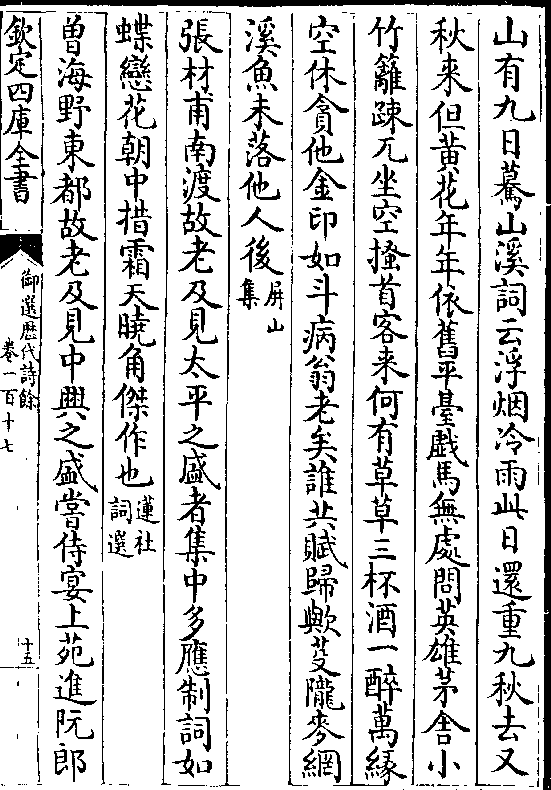 山有九日驀山溪詞云浮烟冷雨此日還重九秋去又
秋来但黄花年年依舊平臺戯馬無處問英雄茅舎小
竹籬踈兀坐空搔首客来何有草草三杯酒一醉萬緣
空休貪他金印如斗病翁老矣誰共賦歸歟芟隴麥網
溪魚未落他人後屏山集
張材甫南渡故老及見太平之盛者集中多應制詞如
蝶戀花朝中措霜天曉角傑作也蓮社詞選
曾海野東都故老及見中興之盛嘗侍宴上苑進阮郎
欽定四庫全書
御選歴代詩餘
卷一百十七
十五